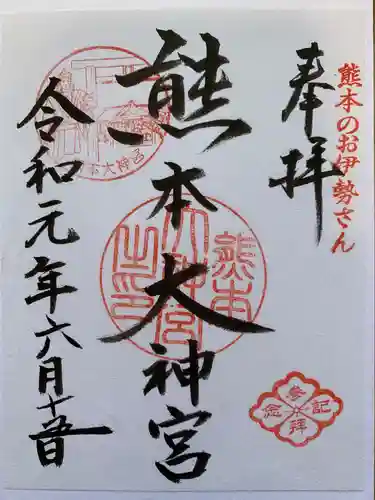 熊本のお伊勢さん
奉拝
熊本大神宮
令和元年六月十五日
熊本大神宮之印
参拝記念